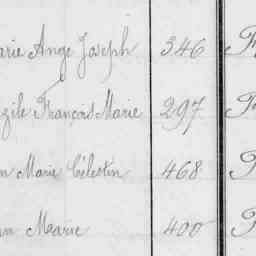 arie Ange Joseph 346
François Marie 297
n Marie Célestin 468
n Marie 400